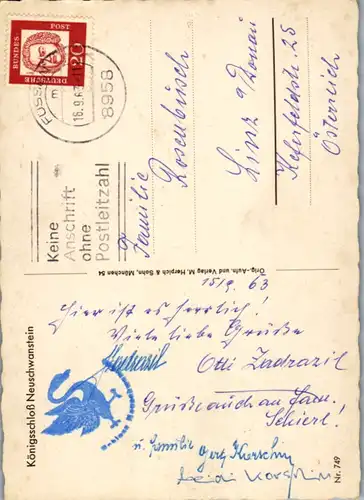 Königsschloß Neuschwanstein
15/9. 63
Hier ist es herrlich!
Viele liebe Grüße
Otti Zadrazil
Grüße auch an Fam.
Scherl!
u. Familie
Nr. 749
Orig.-Aufn. und Verlag M. Herpich & Sohn, München 54
Keine
Anschrift
ohne
Postleitzahl
FÜSSEN
16.9.63
8958
DEUTSCHE
BUNDES
POST
20
Familie
Rosenbusch
Linz a/Donau
25
Österreich